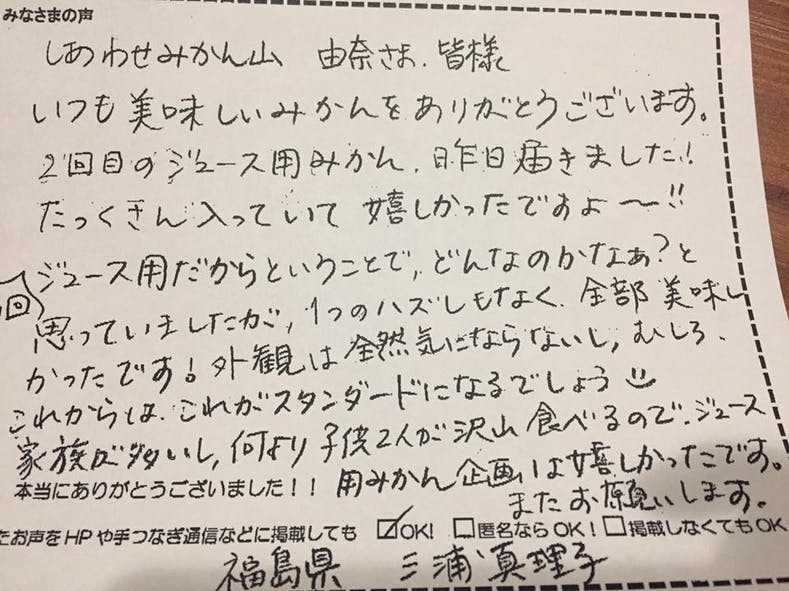 みなさまの声
しあわせみかん山 由奈さま、皆様
いつも美味しいみかんをありがとうございます。
2回目のジュース用みかん、昨日届きました!
たっくさん入っていて 嬉しかったですよ〜!!
ジュース用だからということで、どんなのかなぁ?と
回
思っていましたが、1つのハズレもなく、全部美味し
かったです!外観は全然気にならないし、むしろ、
これからは、これがスタンダードになるでしょう
家族が多いし、何より子供2人が沢山食べるので、ジュース
用みかん企画は嬉しかったです。
本当にありがとうございました!!
またお願いします。
たお声をHPや手つなぎ通信などに掲載しても ☑OK! □匿名ならOK! □掲載しなくてもOK
福島県 三浦真理子